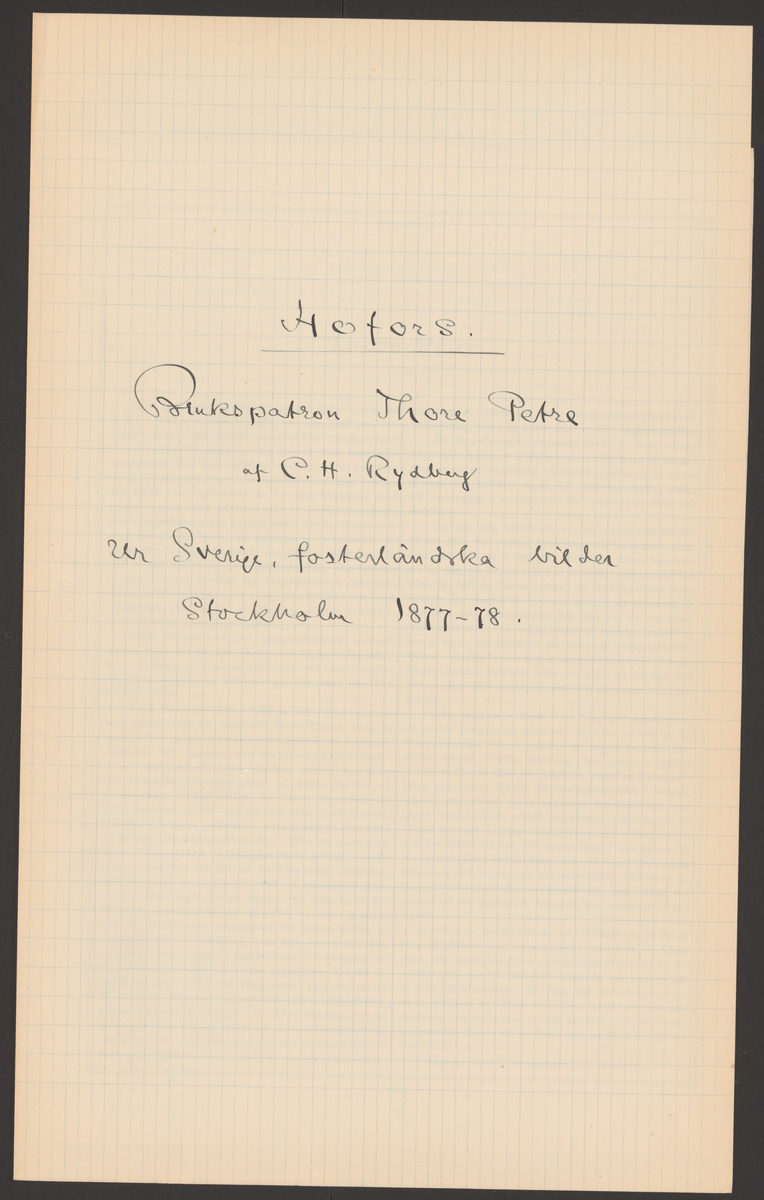 Hofors.
Brukspatron Thore Petre
af C. H. Rydberg
Ur Sverige, fosterländska bilder
Stockholm 1877-78.